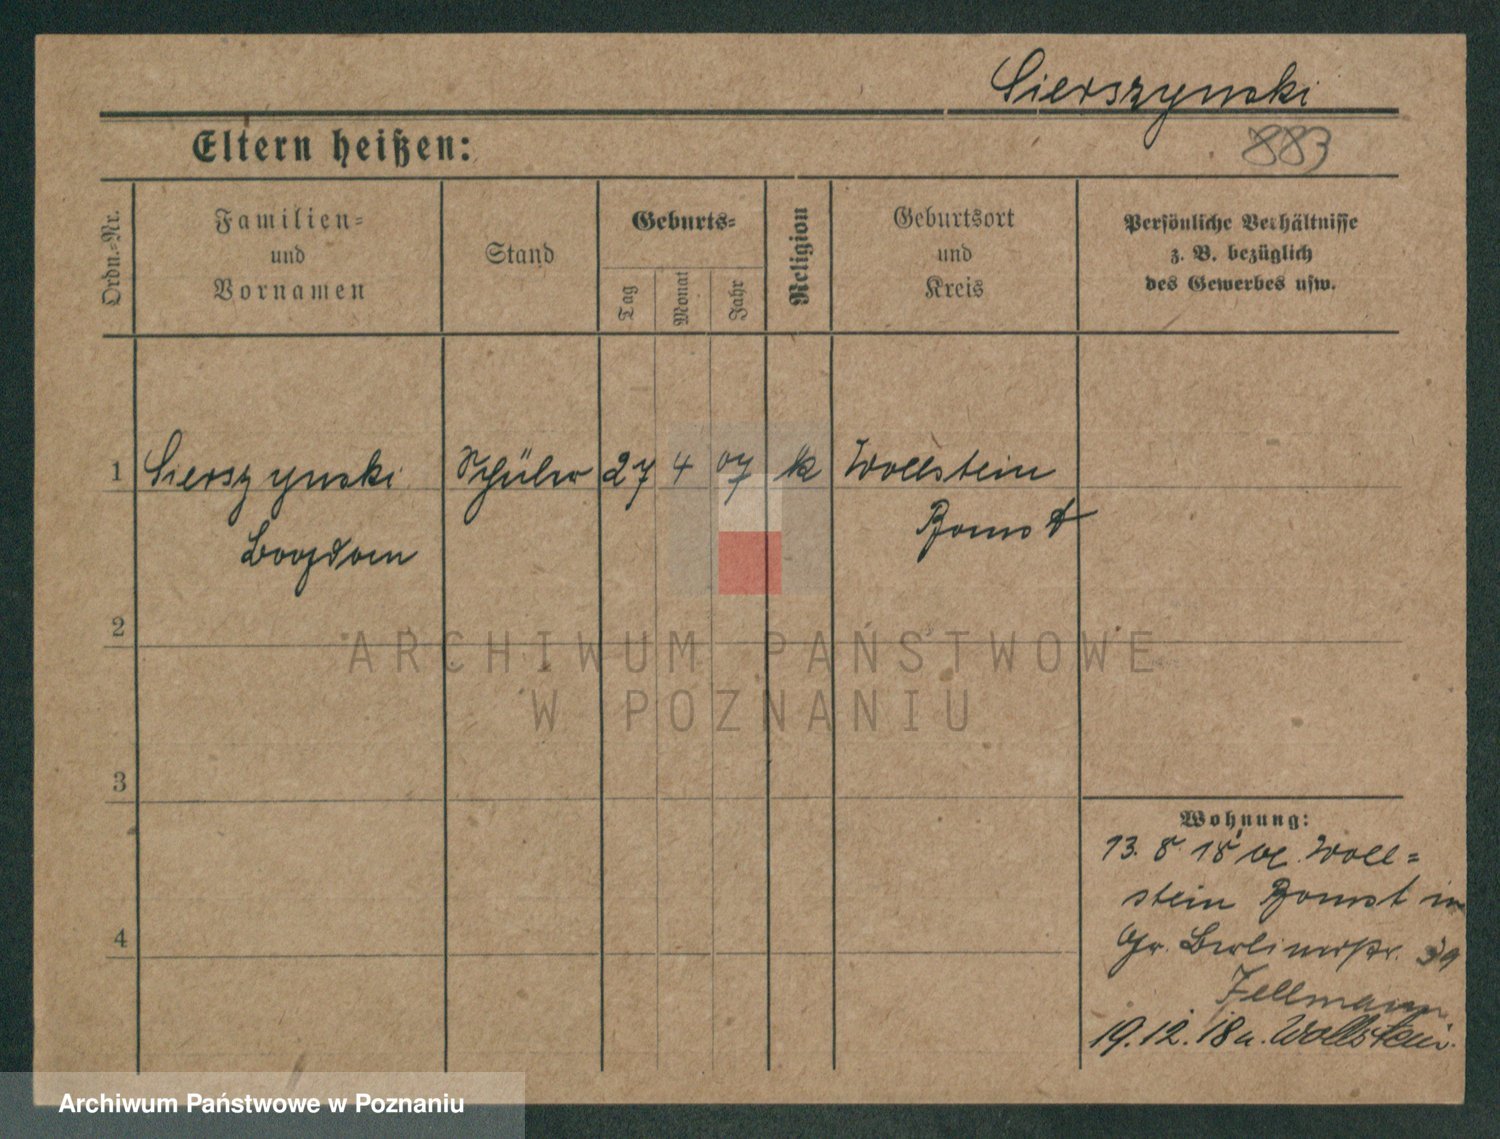 Sierszynski
883
Eltern heißen:
Ordn.-Nr.
Familien-
und
Vornamen
Stand
Geburts-
Tag
Monat
Jahr
Religion
Geburtsort
und
Kreis
Persönliche Verhältnisse
z. B. bezüglich
des Gewerbes usw.
1 Sierszynski Schüler 27 4 07 k Wollstein
Bogdan Bomst
2
3
4
Wohnung:
13. 8. 18 Woll=
stein Bomst in
Gr. Berlinerstr. 39
Zellmann
19.12.18 n. Wollstein.
ARCHIWUM PAŃSTWOWE
W POZNANIU
Archiwum Państwowe w Poznaniu